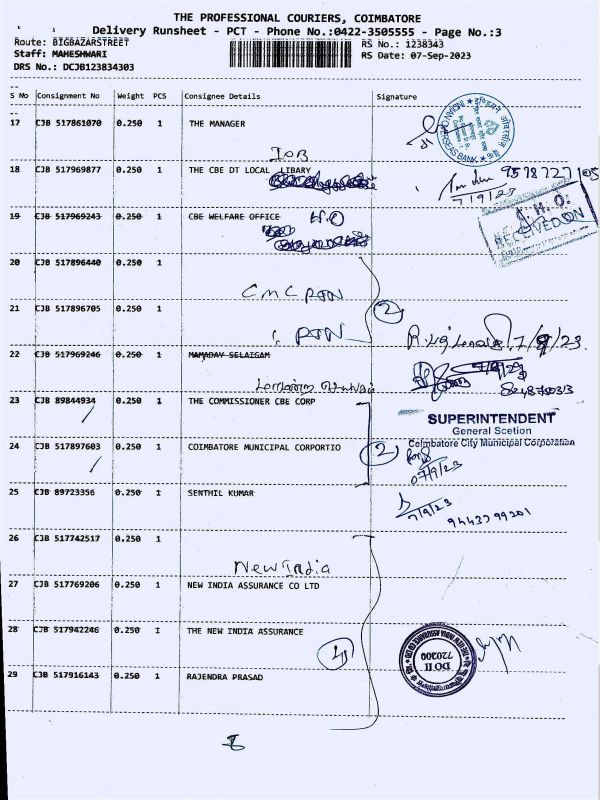 THE PROFESSIONAL COURIERS, COIMBATORE
Delivery Runsheet - PCT - Phone No.:0422-3505555 - Page No.:3
Route: BIGBAZARSTREET RS No.: 1238343
Staff: MAHESHWARI RS Date: 07-Sep-2023
DRS No.: DCJB123834303
S No Consignment No Weight PCS Consignee Details Signature
17 CJB 517861070 0.250 1 THE MANAGER
IOB
18 CJB 517969877 0.250 1 THE CBE DT LOCAL LIBARY
7/9/23
19 CJB 517969243 0.250 1 CBE WELFARE OFFICE H.O
A.H.O.
RECEIVED ON
20 CJB 517896440 0.250 1
CMC PTN
2
21 CJB 517896705 0.250 1
PTN
7/9/23
22 CJB 517969246 0.250 1 MAMADAY SELAIGAM
23 CJB 89844934 0.250 1 THE COMMISSIONER CBE CORP
SUPERINTENDENT
General Scetion
Coimbatore City Municipal Corporation
24 CJB 517897603 0.250 1 COIMBATORE MUNICIPAL CORPORTIO 2
07/9/23
25 CJB 89723356 0.250 1 SENTHIL KUMAR
7/9/23
9443799201
26 CJB 517742517 0.250 1
New India
27 CJB 517769206 0.250 1 NEW INDIA ASSURANCE CO LTD
28 CJB 517942246 0.250 1 THE NEW INDIA ASSURANCE
4
DO II
720300
29 CJB 517916143 0.250 1 RAJENDRA PRASAD